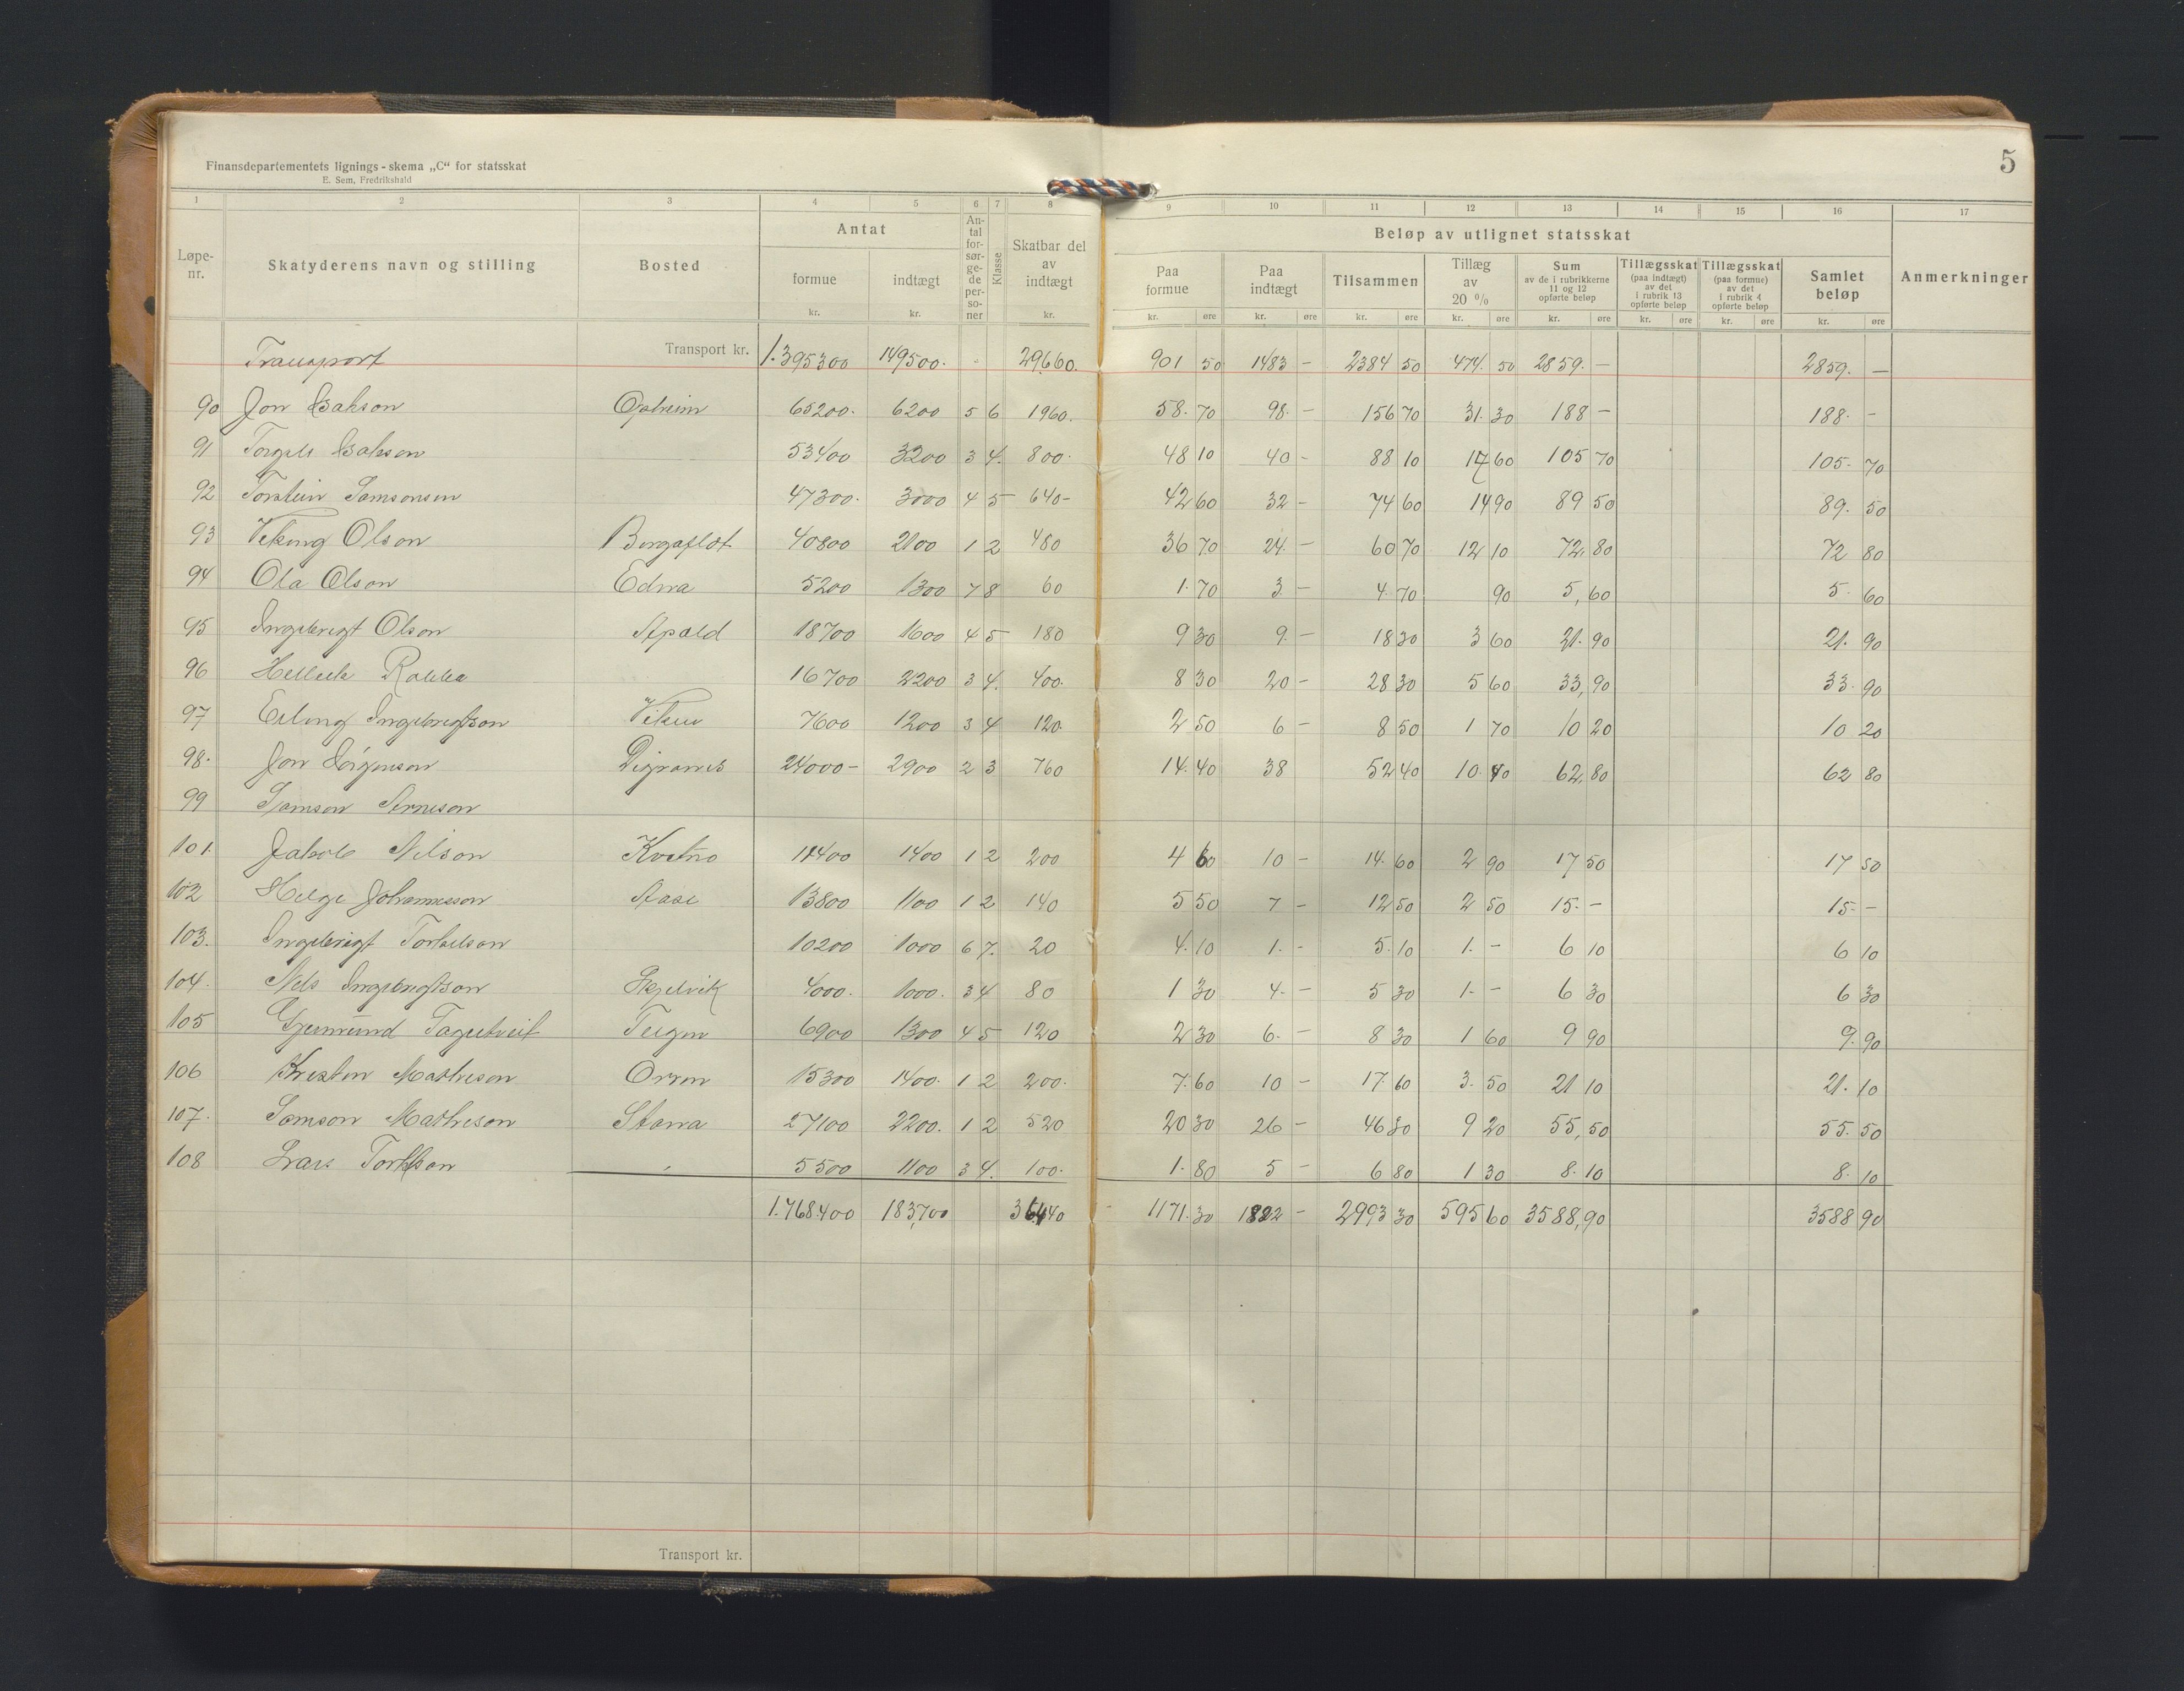 5
Finansdepartementets lignings-skema „C“ for statsskat
E. Sem, Fredrikshald
1 2 3 4 5 6 7 8 9 10 11 12 13 14 15 16 17
Løpe-nr. Skatyderens navn og stilling Bosted Antat formue kr. indtægt kr. An-tal for-sør-ge-de per-so-ner Klasse Skatbar del av indtægt kr. Beløp av utlignet statsskat Paa formue kr. øre Paa indtægt kr. øre Tilsammen kr. øre Tillæg av 20 % kr. øre Sum av de i rubrikkerne 11 og 12 opførte beløp kr. øre Tillægsskat (paa indtægt) av det i rubrik 13 opførte beløp kr. øre Tillægsskat (paa formue) av det i rubrik 4 opførte beløp kr. øre Samlet beløp kr. øre Anmerkninger
Transport Transport kr. 1.395300 149500. 29660. 901 50 1483 – 2384 50 474. 50 2859. – 2859. –
90 Jon Isakson Opheim 65200. 6200 5 6 1960. 58. 70 98. – 156 70 31. 30 188 – 188. –
91 Torgils Isakson 53400 3200 3 4. 800. 48 10 40 – 88 10 17 60 105 70 105. 70
92 Torstein Samsonsen 47300. 3000 4 5 640– 42 60 32 – 74 60 14 90 89 50 89. 50
93 Viking Olson Borgaflot 40800 2100 1 2 480 36 70 24. – 60 70 12 10 72. 80 72 80
94 Ola Olson Edna 5200 1300 7 8 60 1. 70 3 – 4. 70 90 5, 60 5. 60
95 Ingebrigt Olson Apald 18700 1600 4 5 180 9 30 9. – 18 30 3 60 21. 90 21. 90
96 Helleik Rokke 16700 2200 3 4. 400. 8 30 20 – 28 30 5 60 33, 90 33. 90
97 Erling Ingebrigtson Viken 7600 1200 3 4 120. 2 50 6 – 8 50 1 70 10 20 10 20
98. Jon Jörgenson Digranes 24000– 2900 2 3 760 14. 40 38 52 40 10. 40 62. 80 62 80
99 Samson Arneson
101. Jakob Nilson Kvitno 11400 1400 1 2 200 4 60 10 – 14. 60 2 90 17 50 17 50
102 Helge Johannesson Aase 13800 1100 1 2 140 5 50 7 – 12 50 2 50 15. – 15. –
103. Ingebrigt Torkelson 10200 1000 6 7. 20 4. 10 1. – 5. 10 1. – 6 10 6 10
104. Nils Ingebrigtson Skjelvik 4000. 1000. 3 4 80 1 30 4. – 5 30 1. – 6 30 6 30
105 Gjermund Tagetveit Teigen 6900 1300 4 5 120 2 30 6. – 8 30 1 60 9 90 9. 90
106 Kristen Matheson Orren 15300 1400. 1 2 200. 7. 60 10 – 17. 60 3. 50 21 10 21. 10
107. Samson Matheson Stana 27100 2200. 1 2 520 20 30 26 – 46 30 9 20 55, 50 55. 50
108 Lars Torkelson 5500 1100 3 4. 100. 1. 80 5 – 6 80 1 30 8. 10 8. 10
1.768.400 183,700 36440 1171. 30 1822 – 2993 30 595 60 3588, 90 3588 90
Transport kr.